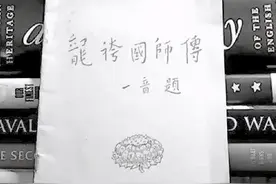 HERITAGE
OF THE
ENGLISH
龍袴國師傳
一音題
AVAL
D WA